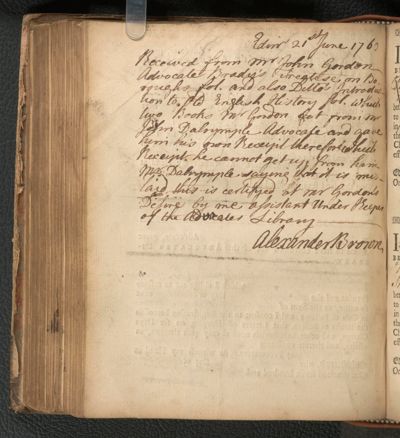 Edinr 21st June 176
Received from Mr John Gordon
Advocate Brady's Treatise on Bo-
roughs fol. and also Ditto's Introduc
tion to Old English History fol. which
two Books Mr Gordon got from Mr
John Dalrymple Advocate and gave
him his own Receipt therefor which
Receipt he cannot get up from him
Mr Dalrymple saying that it is mis-
laid this is certified at Mr Gordon's
Desire by me assistant Under Keeper
of the Advocates Library
Alexander Brown